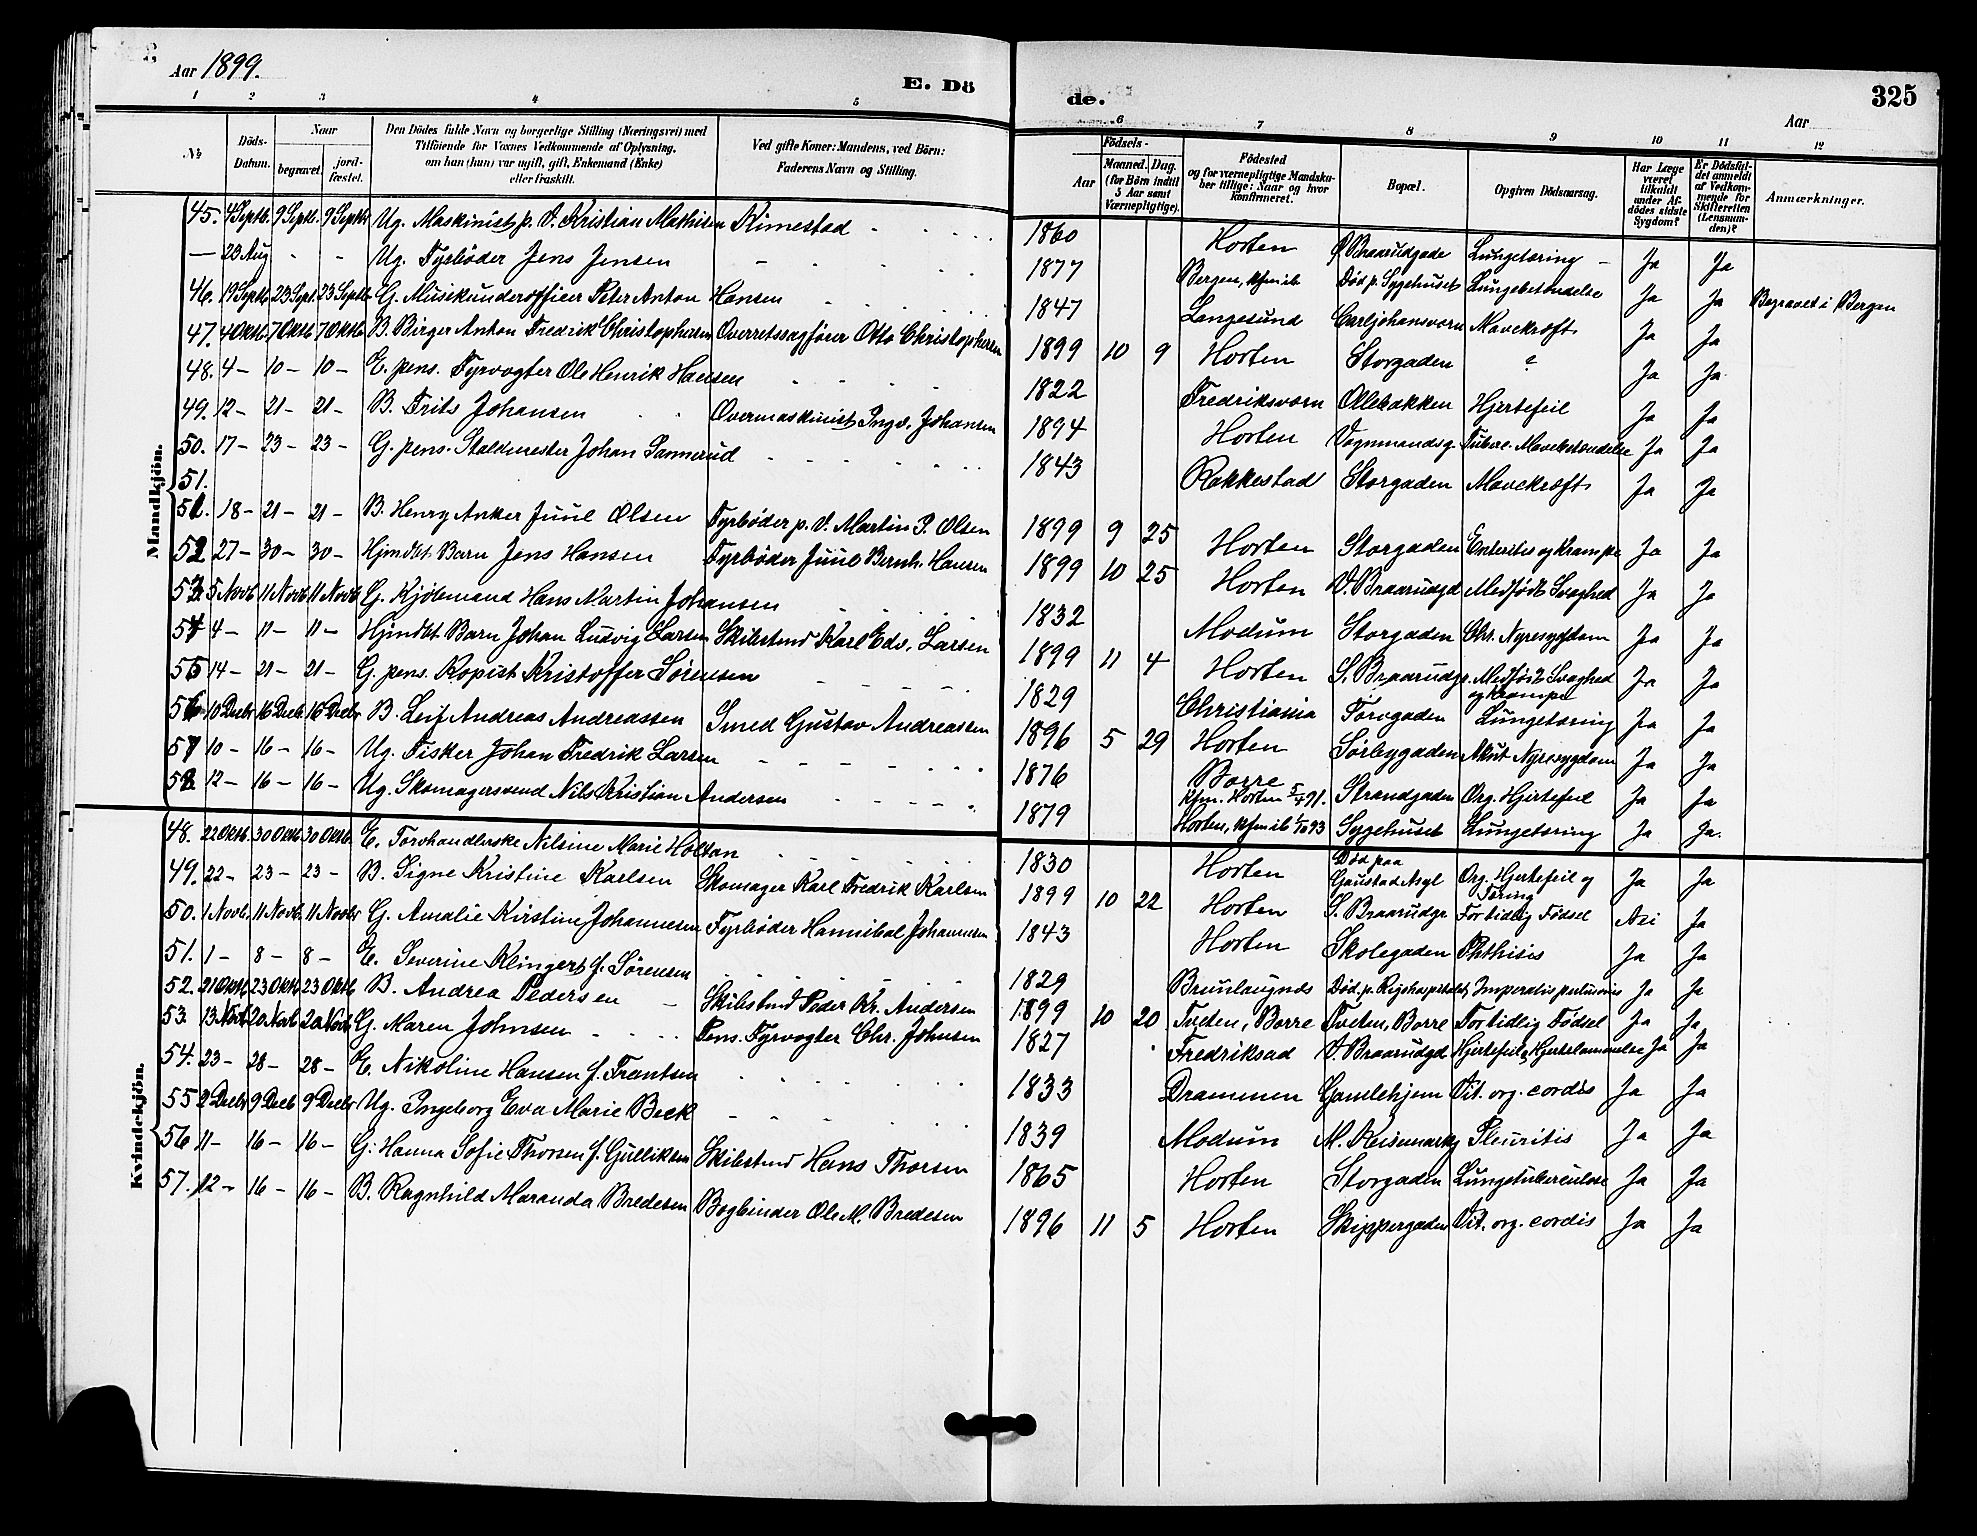 Aar 1899. E. Dö de. Aar 325
1 2 3 4 5 6 7 8 9 10 11 12
No Döds-Datum. Naar begravet. jord-fæstet. Den Dödes fulde Navn og borgerlige Stilling (Næringsvei) med Tilföiende for Voxnes Vedkommende af Oplysning, om han (hun) var ugift, gift, Enkemand (Enke) eller fraskilt. Ved gifte Koner: Mandens, ved Börn: Faderens Navn og Stilling. Födsels- Aar Maaned. Dag. (for Börn indtil 5 Aar samt Værnepligtige). Födested og for værnepligtige Mandskaber tillige: Naar og hvor konfirmeret. Bopæl. Opgiven Dödsaarsag. Har Læge været tilkaldt under Afdödes sidste Sygdom? Er Dödsfaldet anmeldt af Vedkommende for Skifteretten (Lensmanden)? Anmærkninger.
Mandkjön.
45. 4 Septb. 9 Septb. 9 Septbr Ug. Maskinist p. V. Kristian Mathisen Kimestad 1860 Horten Ø. Braarudgade Lungetæring – Ja Ja
— 23 Aug - - Ug. Fyrbøder Jens Jensen 1877 Bergen, kfm ib Død p. Sygehuset Lungebetændelse Ja Ja Begravet i Bergen
46. 19 Septb 23 Sept. 23 Septb G. Musikunderofficer Peter Anton Hansen 1847 Langesund Carljohansværn Mavekræft Ja Ja
47. 4 Oktb. 7 Oktb 7 Oktb B. Birger Anton Fredrik Christophersen Overretssagfører Otto Christophersen 1899 10 9 Horten Storgaden ? Ja Ja
48. 4 – 10 – 10 – E. pens. Fyrvogter Ole Henrik Hansen 1822 Fredriksværn Ollebakken Hjertefeil Ja Ja
49. 12 – 21 – 21 – B. Frits Johansen Overmaskinist Ingv. Johansen 1894 Horten Vognmandsg. Tuberc. Mavebetændelse Ja Ja
50. 17 – 23 – 23 – G. pens. Staldmester Johan Sannerud 1843 Rakkestad Storgaden Mavekræft Ja Ja
51.
51. 18 – 21 – 21 – B. Henry Anker Juul Olsen Fyrbøder p. V. Martin P. Olsen 1899 9 25 Horten Storgaden Enteritis og Krampe Ja Ja
52 27 – 30 – 30 – Hjmdbt. Barn Jens Hansen Fyrbøder Juul Bernh. Hansen 1899 10 25 Horten V. Braarudgd Medfødt Svaghed Ja Ja
53. 5 Novb 11 Novb 11 Novb G. Kjøbmand Hans Martin Johansen 1832 Modum Storgaden Chr. Nyresygdom Ja Ja
54 4 – 11 – 11 – Hjmdbt Barn Johan Ludvig Larsen Skibstmd Karl Edv. Larsen 1899 11 4 Horten S. Braarudgr. Medfødt Svaghed og Krampe Ja Ja
55 14 – 21 – 21 – G. pens. Kopist Kristoffer Sørensen 1829 Christiania Torvgaden Lungetæring Ja Ja
56 10 Decbr 16 Decb 16 Decbr B. Leif Andreas Andreassen Smed Gustav Andreassen 1896 5 29 Horten Sørbygaden Akut Nyresygdom Ja Ja
57 10 – 16 – 16 – Ug. Fisker Johan Fredrik Larsen 1876 Borre kfm. Horten 5/4 91. Strandgaden Org. Hjertefeil Ja Ja
58. 12 – 16 – 16 – Ug. Skomagersvend Nils Kristian Andersen 1879 Horten, kfm ib 1/10 93 Sygehuset Lungetæring Ja Ja.
Kvindekjön.
48. 22 Oktb. 30 Oktb. 30 Oktb. E. Torvhandlerske Nilsine Marie Holtan 1830 Horten Død paa Gaustad Asyl Org. Hjertefeil og Tæring Ja Ja
49. 22 – 23 – 23 – B. Signe Kristine Karlsen Skomager Karl Fredrik Karlsen 1899 10 22 Horten S. Braarudgr Fortidlig Fødsel Nei Ja
50. 1 Novb. 11 Novb. 11 Novbr G. Amalie Kirstine Johannesen Fyrbøder Hannibal Johannesen 1843 Horten Skolegaden Phthisis Ja Ja
51. 1 – 8 – 8 – E. Severine Klingert f. Sørensen 1829 Brunlaugnds Død. p. Rigshospitalet Ja Ja
52. 21 Oktb 23 Oktb 23 Oktb B. Andrea Pedersen – Skibstmd Peder Kr. Andersen 1899 10 20 Tveten, Borre Tveten, Borre Fortidlig Fødsel Ja Ja
53. 13 Novb 20 Novb 20 Novb. G. Maren Johnsen Pens. Fyrvogter Chr. Johnsen 1827 Fredriksad V. Braarudgd Hjertefeil, Hjertelammelse Ja Ja
54. 23 – 28 – 28 – E. Nikoline Hansen f. Frantsen 1833 Drammen Gamlehjem Vit. org. cordis Ja Ja
55 2 Decbr 9 Decb 9 Decbr Ug. Ingeborg Eva Marie Beck 1839 Modum M. Keisemark Pleuritis Ja Ja
56 11 – 16 – 16 – G: Hanna Sofie Thorsen f. Gulliksen Skibstmd Hans Thorsen 1865 Horten Storgaden Lungetuberculose Ja Ja
57. 12 – 16 – 16 – B. Ragnhild Maranda Bredesen Bogbinder Ole M. Bredesen 1896 11 5 Horten Skippergaden Vit. org. cordis Ja Ja